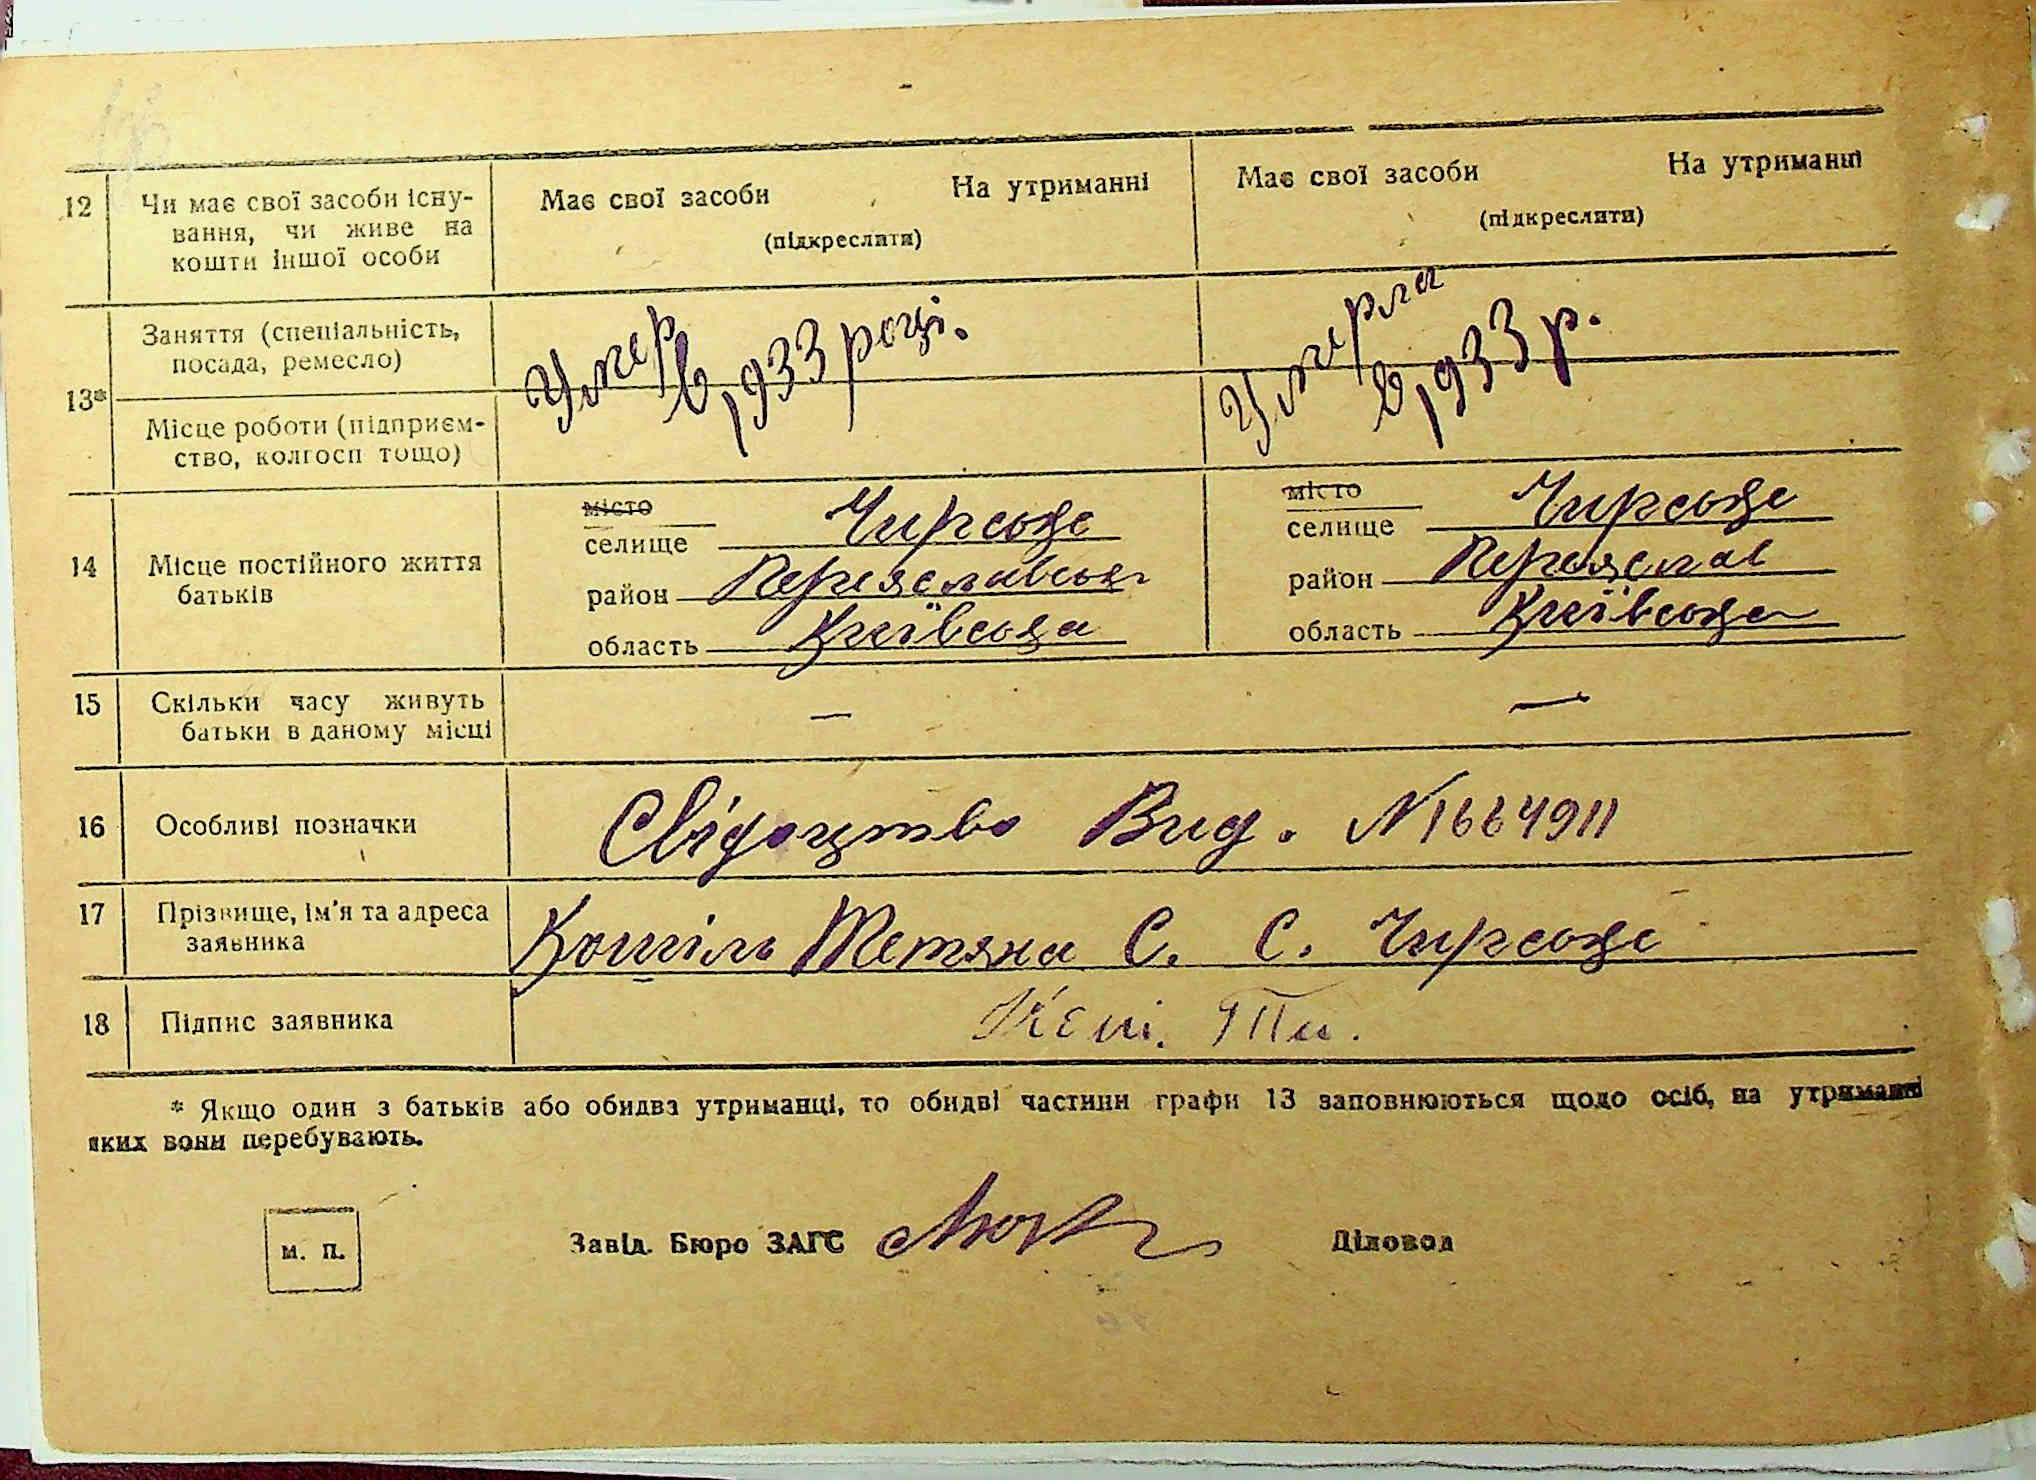 12 Чи має свої засоби існу-
вання, чи живе на
кошти іншої особи
Має свої засоби На утриманні
(підкреслити)
Має свої засоби На утриманні
(підкреслити)
13*
Заняття (спеціальність,
посада, ремесло)
Місце роботи (підприєм-
ство, колгосп тощо)
Умер
в 1933 році.
Умерла
в 1933 р.
14 Місце постійного життя
батьків
місто
селище Чирське
район Переяславськ
область Київська
місто
селище Чирське
район Переяслав
область Київська
15 Скільки часу живуть
батьки в даному місці
— —
16 Особливі позначки
Свідоцтво Вид. N 1664911
17 Прізвище, ім'я та адреса
заявника
Кошіль Тетяна С. С. Чирське
18 Підпис заявника
* Якщо один з батьків або обидва утриманці, то обидві частини графи 13 заповнюються щодо осіб, на утриманні
яких вони перебувають.
м. п.
Завід. Бюро ЗАГС
Діловод